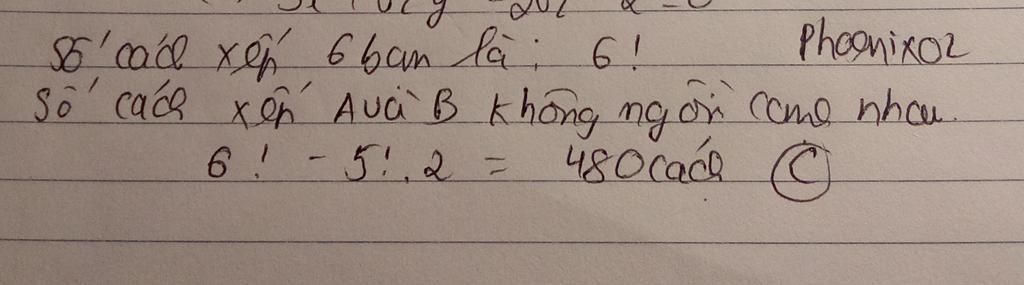 Số cách xếp 6 bạn là: 6! Phoenix02
Số cách xếp A và B không ngồi cạnh nhau.
6! - 5!.2 = 480 cách (C)